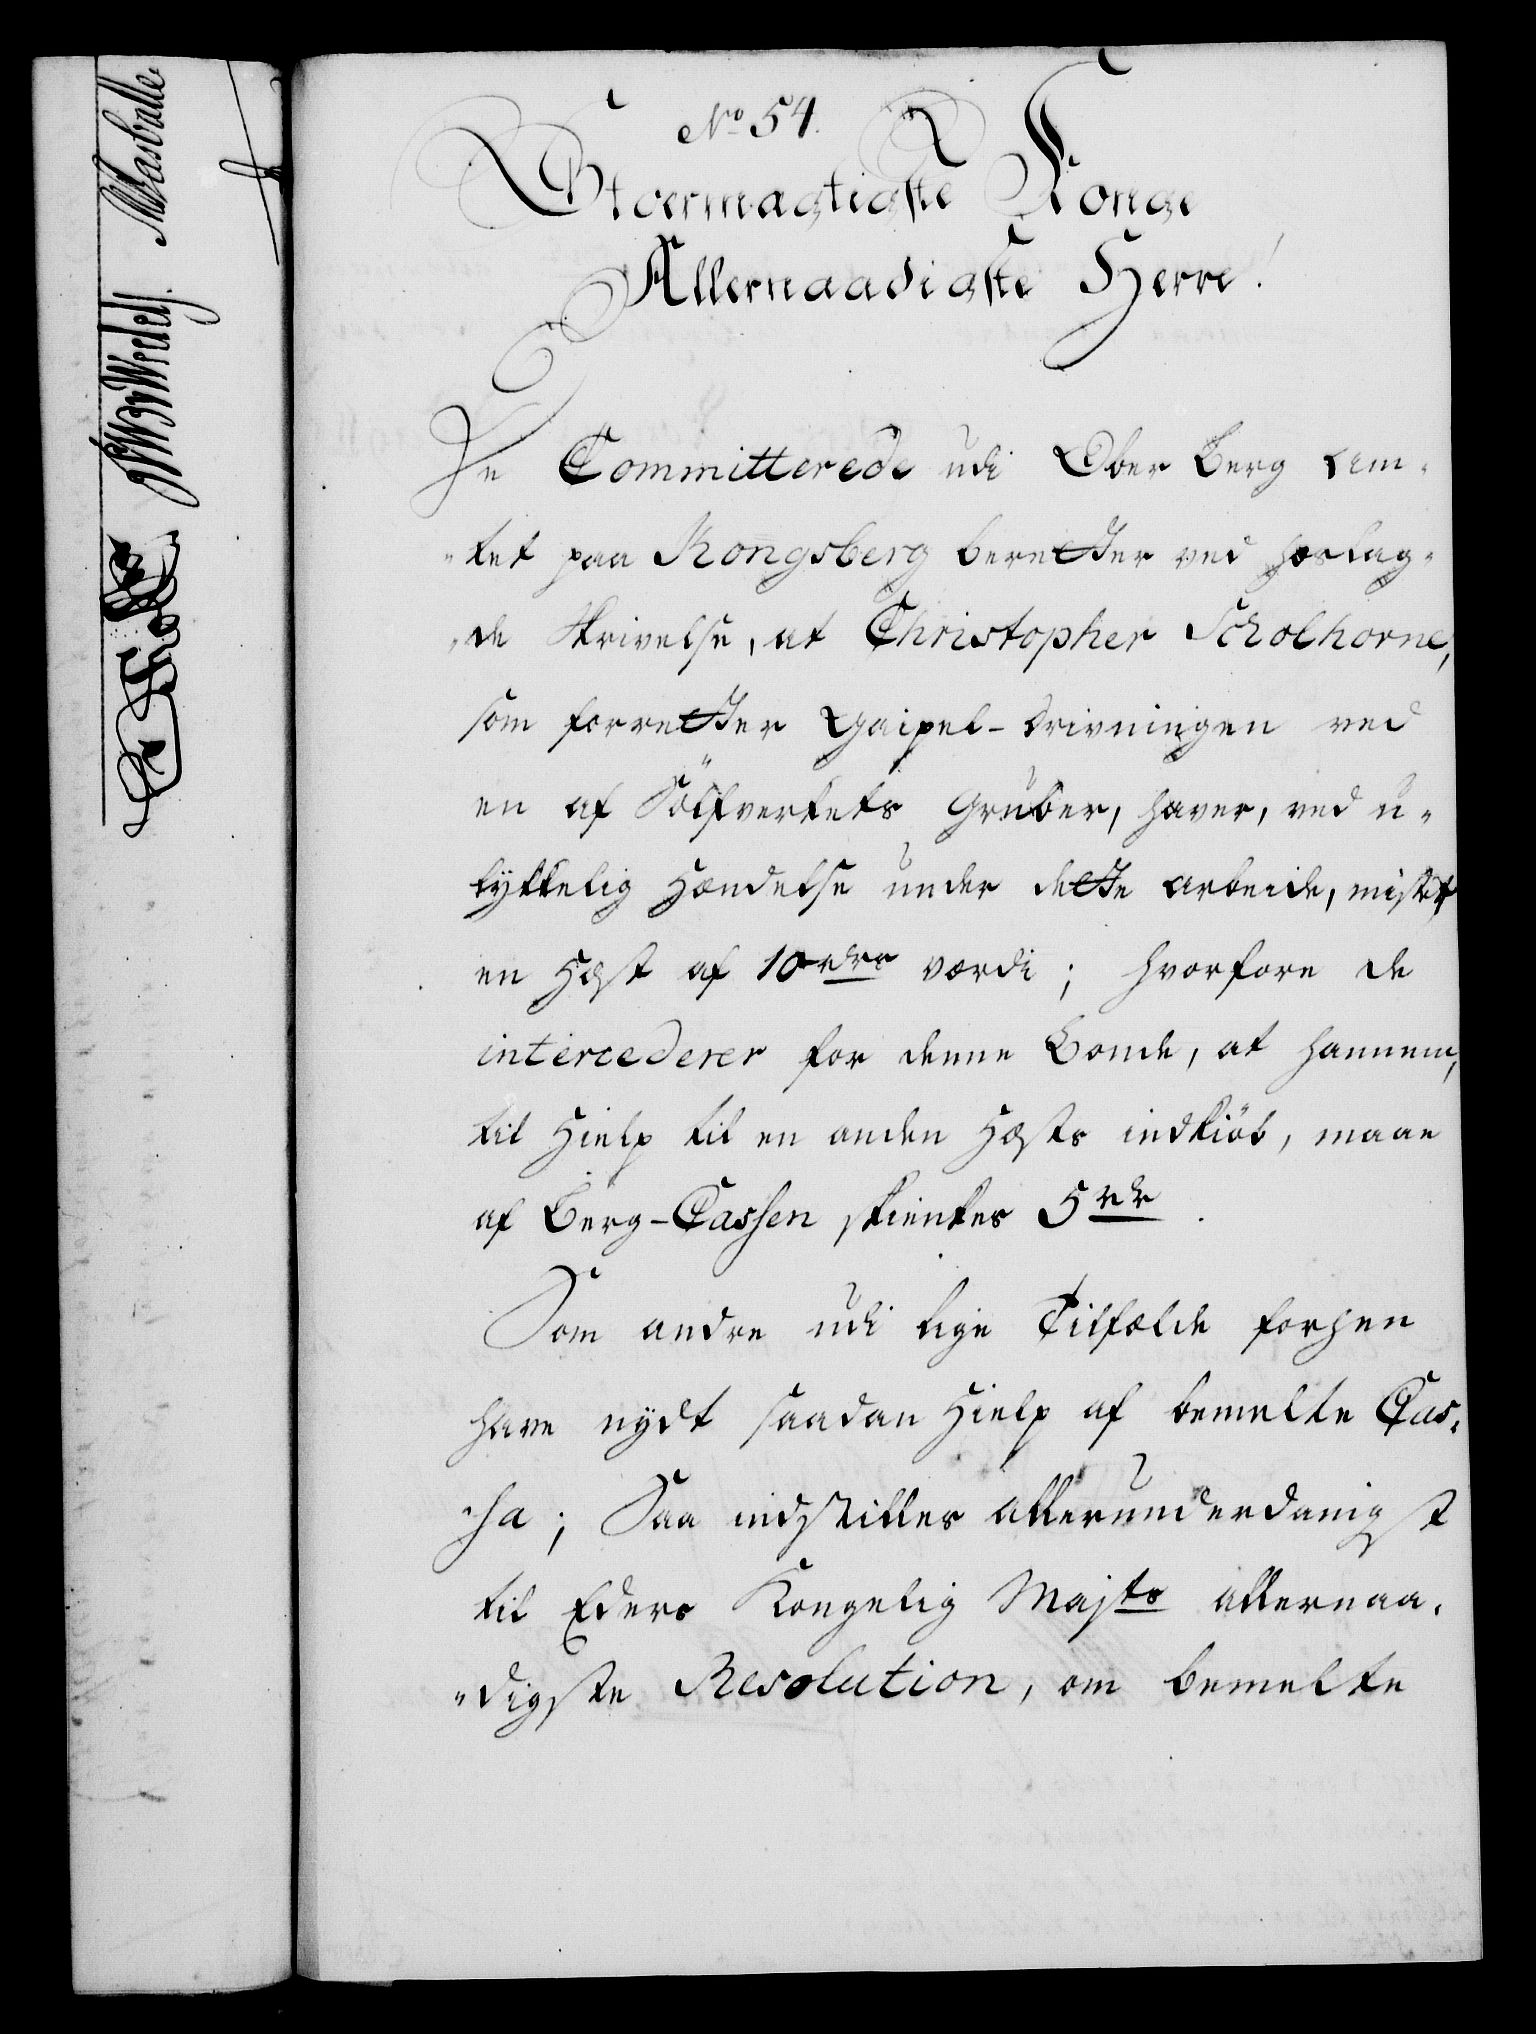 No 54.
Stormægtigste Konge
Allernaadigste Herre!
De Committerede udi Ober Berg Am-
"tet paa Kongsberg beretter ved hoslag-
"de Skrivelse, at Christopher Scholhorne,
som forretter Gaipel-Drivningen ved
en af Sölfverkets Gruber, haver, ved u-
lykkelig Hændelse under dette Arbeide, mistet
en Hest af 10 rdrs værdi; hvorfore de
intercederer for denne Bonde, at hannem,
til Hielp til en anden Hests indkiöb, maae
af Berg-Cassen skienkes 5 rdr.
Som andre udi lige Tilfælde forhen
have nydt saadan Hielp af bemelte Cas-
"sa; Saa indstilles allerunderdanigst
til Eders Kongelig Majts allernaa-
"digste Resolution, om bemelte